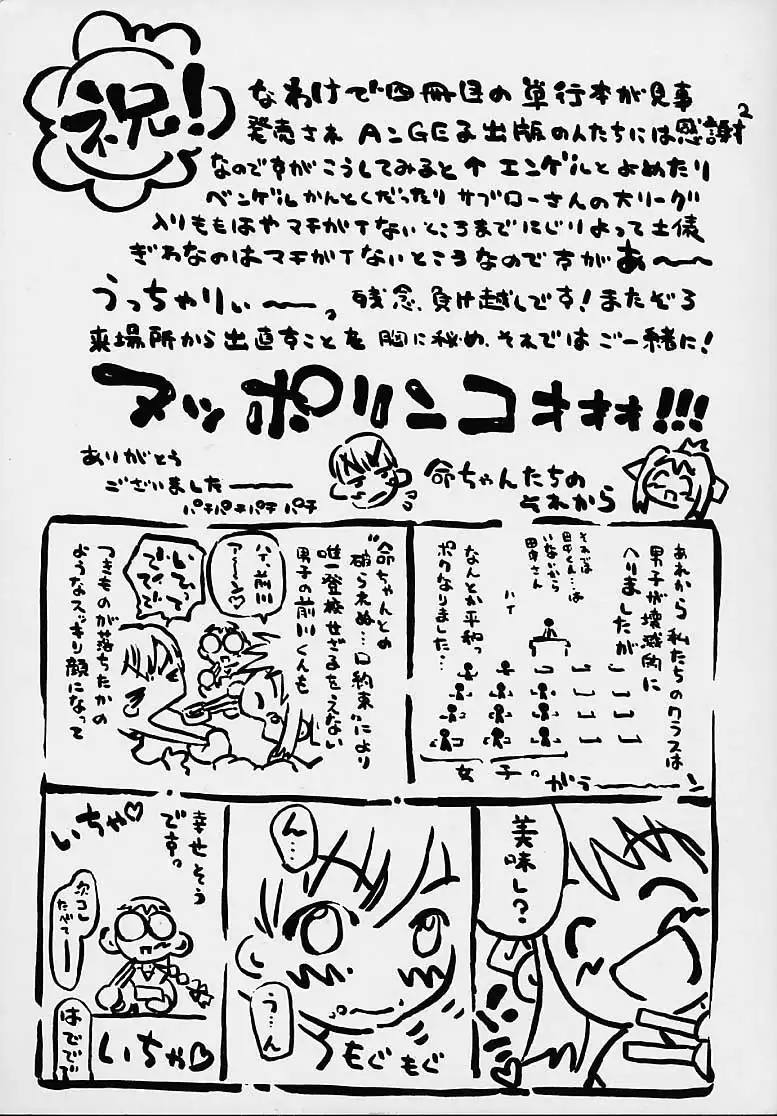 祝!
なわけで四冊目の単行本が見事
発売され AンGEる出版の人たちには感謝2
なのですがこうしてみると↑エンゲルとよめたり
ベンゲルかんとくだったり サブローさんの大リーグ
入りももはやマチガイないところまでにじりよって土俵
ぎわなのはマチガイないところなのですがあ〜〜
うっちゃりぃ——。残念、負け越しです!またぞろ
来場所から出直すことを胸に秘め、それではご一緒に!
マッポリンコオオオ!!!
ありがとう
ございました———
パチパチパチパチ
命ちゃんたちの
それから
あれから私たちのクラスは
男子が壊滅的に
へりましたが
それでは
田中くん…は
いないから
田中さん
ハイ
なんとか平和っ
ポクなりました…
女子。
がらーーーン
"命ちゃんとの
破られぬ…口約束"により
唯一登校せざるをえない
男子の前川くんも
ハイ、前川
ア〜〜ン♡
つきものが落ちたかの
ようなスッキリ顔になって
美味し?
ん…
う…ん
もぐもぐ
幸せそう
です。
いちゃ♡
次コレ
たべて——
はででで
いちゃ♡